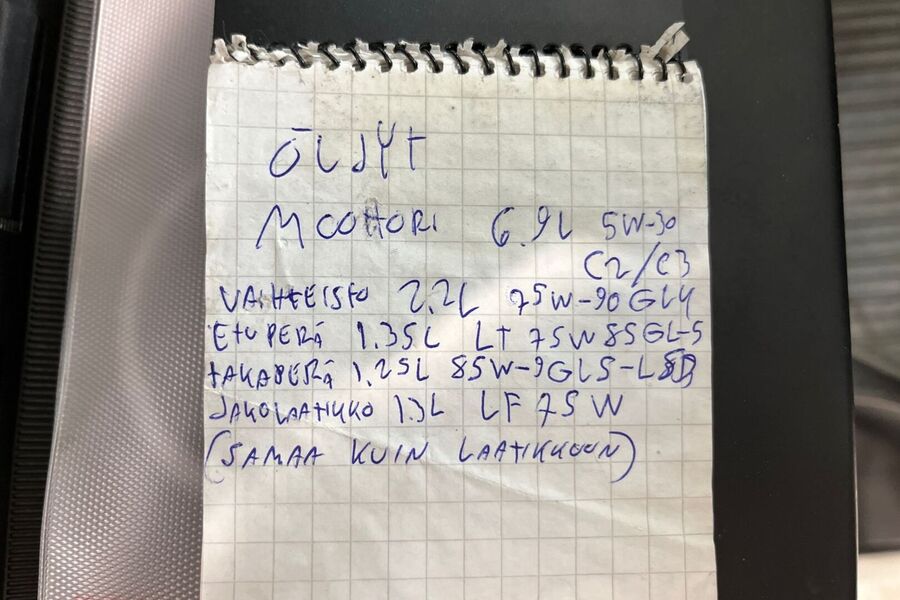 ÖLJYT
MOOTTORI 6.9L 5W-30
C2/C3
VAIHTEISTO 2.2L 75W-90 GL4
ETUPERÄ 1.35L LT 75W85GL-5
TAKAPERÄ 1.25L 85W-9GL5-LSD
JAKOLAATIKKO 1.3L LF 75W
(SAMAA KUIN LAATIKKOON)